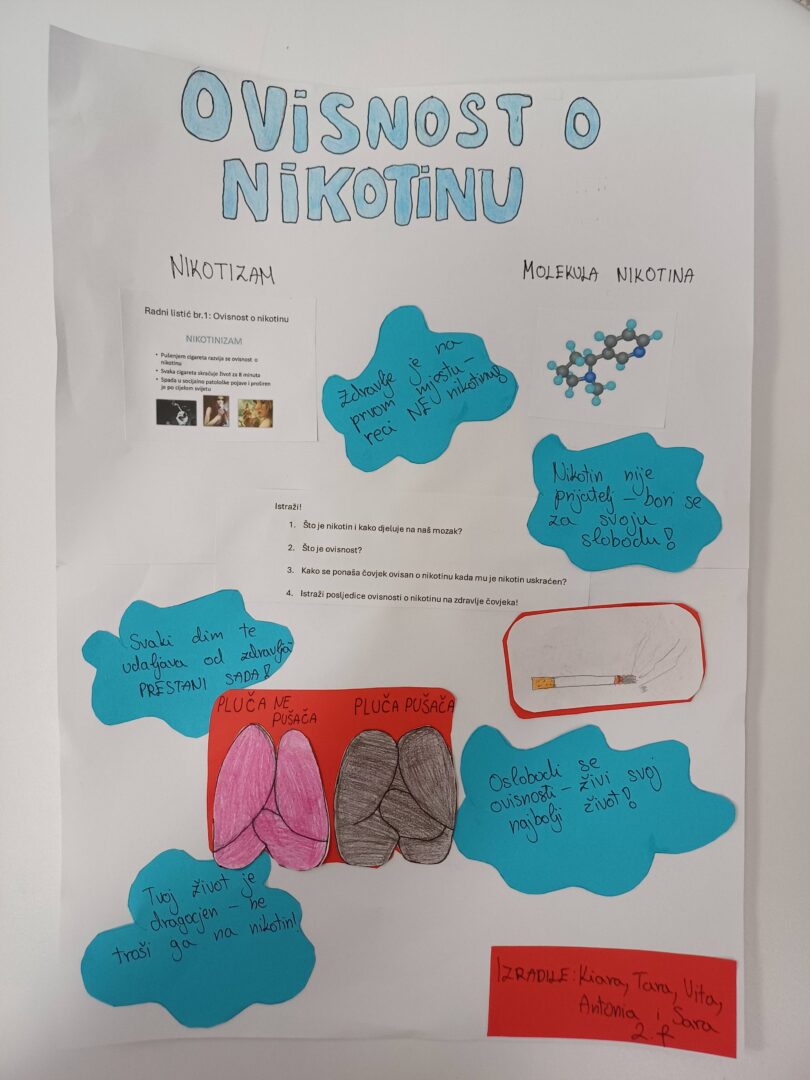 OVISNOST O
NIKOTINU
NIKOTIZAM
MOLEKULA NIKOTINA
Radni listić br.1: Ovisnost o nikotinu
NIKOTINIZAM
• Pušenjem cigareta razvija se ovisnost o
nikotinu
• Svaka cigareta skraćuje život za 8 minuta
• Spada u socijalno patološke pojave i proširen
je po cijelom svijetu
Zdravlje je na
prvom mjestu –
reci NE nikotinu!
Nikotin nije
prijatelj – bori se
za svoju
slobodu!
Istraži!
1. Što je nikotin i kako djeluje na naš mozak?
2. Što je ovisnost?
3. Kako se ponaša čovjek ovisan o nikotinu kada mu je nikotin uskraćen?
4. Istraži posljedice ovisnosti o nikotinu na zdravlje čovjeka!
Svaki dim te
udaljava od zdravlja
PRESTANI SADA!
PLUČA NE
PUŠAČA
PLUČA PUŠAČA
Oslobodi se
ovisnosti – živi svoj
najbolji život!
Tvoj život je
dragocjen – ne
troši ga na nikotin!
IZRADILE: Kiara, Tara, Vita,
Antonia i Sara
2. f